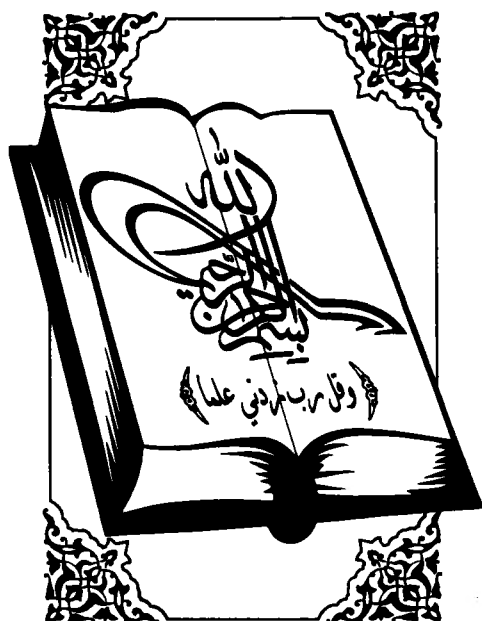 بسم الله الرحمن الرحيم
﴿ وقل رب زدني علما ﴾